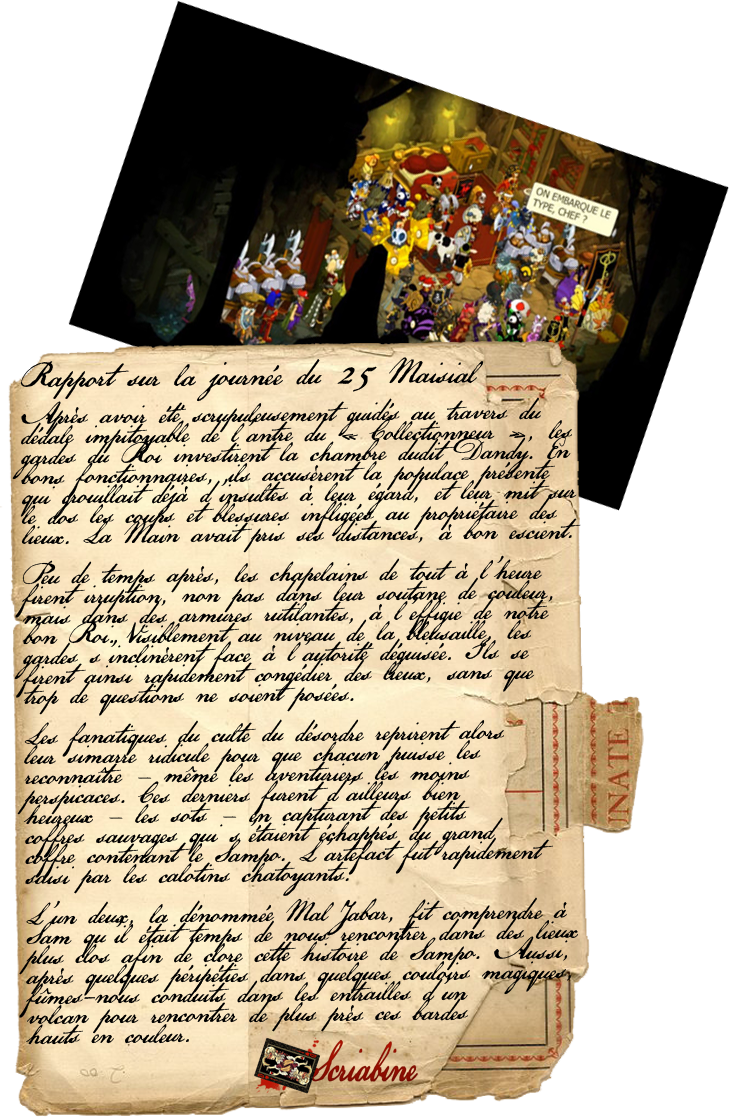 ON EMBARQUE LE
TYPE, CHEF ?
Rapport sur la journée du 25 Maisial
Après avoir été scrupuleusement guidés au travers du
dédale impitoyable de l'antre du « Collectionneur », les
gardes du Roi investirent la chambre dudit Dandy. En
bons fonctionnaires, ils accusèrent la populace présente
qui grouillait déjà d'insultes à leur égard, et leur mit sur
le dos les coups et blessures infligées au propriétaire des
lieux. La Main avait pris ses distances, à bon escient.
Peu de temps après, les chapelains de tout à l'heure
firent irruption, non pas dans leur soutane de couleur,
mais dans des armures rutilantes, à l'effigie de notre
bon Roi. Visiblement au niveau de la bleusaille, les
gardes s'inclinèrent face à l'autorité déguisée. Ils se
firent ainsi rapidement congédier des lieux, sans que
trop de questions ne soient posées.
Les fanatiques du culte du désordre reprirent alors
leur simarre ridicule pour que chacun puisse les
reconnaître - même les aventuriers les moins
perspicaces. Ces derniers furent d'ailleurs bien
heureux - les sots - en capturant des petits
coffres sauvages qui s'étaient échappés du grand
coffre contenant le Sampo. L'artefact fut rapidement
saisi par les calotins chatoyants.
L'un deux, la dénommée Mal Jabar, fit comprendre à
Sam qu'il était temps de nous rencontrer dans des lieux
plus clos afin de clore cette histoire de Sampo. Aussi,
après quelques péripéties dans quelques couloirs magiques,
fûmes-nous conduits dans les entrailles d'un
volcan pour rencontrer de plus près ces bardes
hauts en couleur.
Scriabine
INATE T